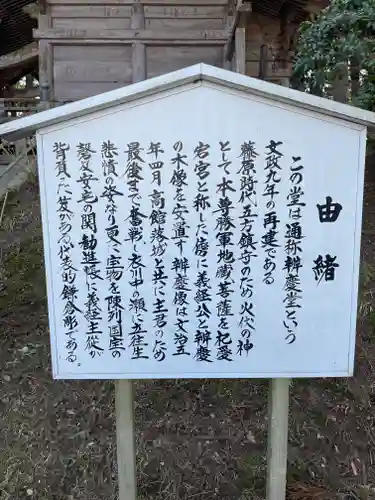 由緒
この堂は通称辨慶堂という
文政九年の再建である
藤原時代五方鎮守のため火伏の神
として本尊勝軍地蔵菩薩を祀り
宕宮と称した傍に義経公と辨慶
の木像を安置す 辨慶像は文治五
年四月高館落城と共に主君のため
最後まで奮戦し衣川中の瀬に立往生
悲憤の姿なり更に宝物を陳列国宝の
磬と安宅の関勧進帳に義経主従が
背負った笈がある代表的鎌倉彫である。